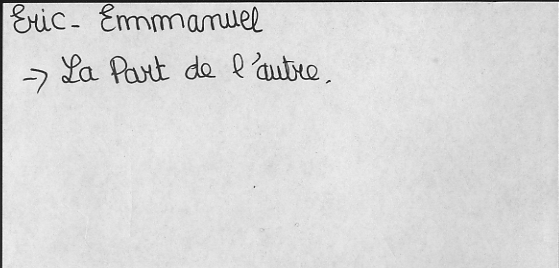 Eric - Emmanuel
→ La Part de l'autre.